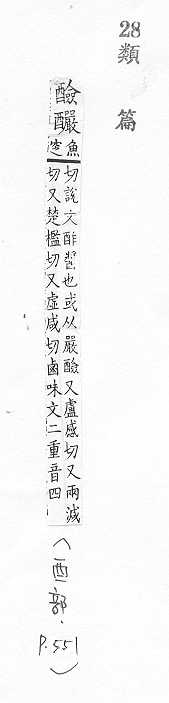 28
類篇
醶釅
魚窆
切說文酢也或从嚴醶又盧感切又兩減
切又楚檻切又虛咸切鹵味文二重音四
(酉部.P.551)